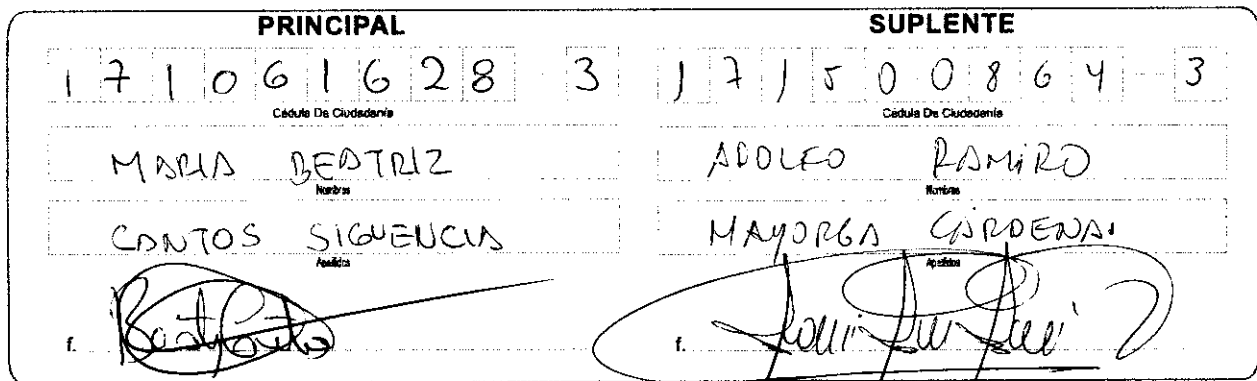 PRINCIPAL
171061628 3
Cédula De Ciudadanía
MARIA BEATRIZ
Nombres
CANTOS SIGUENCIA
Apellidos
f.
SUPLENTE
171500864 3
Cédula De Ciudadanía
ADOLFO RAMIRO
Nombres
MAYORGA CARDENAS
Apellidos
f.